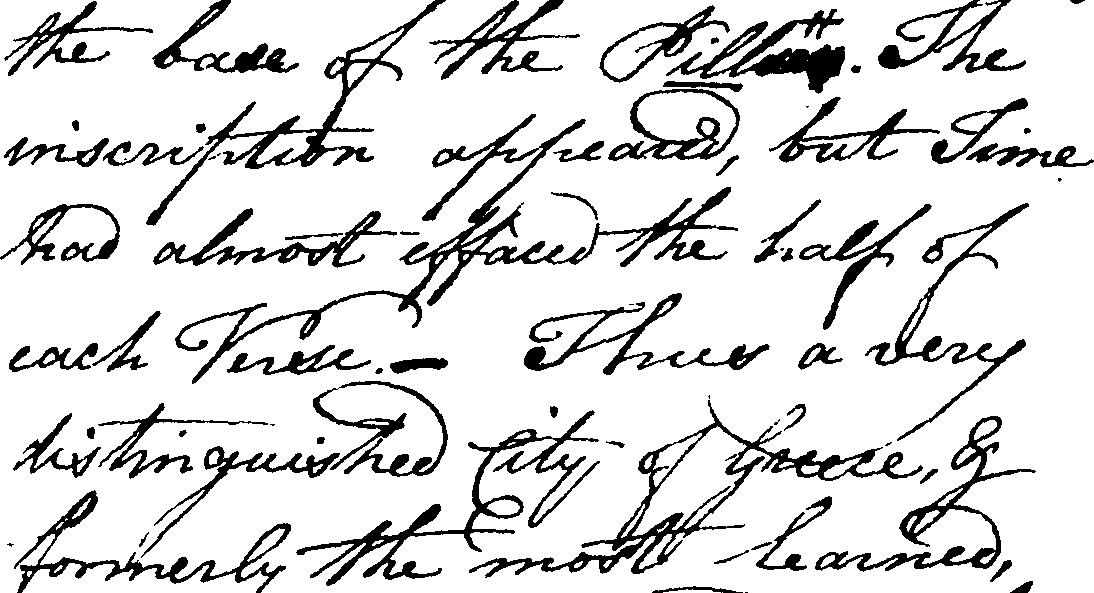 the base of the Pillar. The
inscription appeared, but Time
had almost effaced the half of
each Verse. — Thus a very
distinguished City of Greece, &
formerly the most learned,